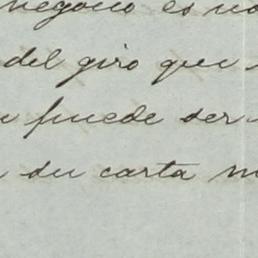 negocio es no
del giro que
puede ser
su carta